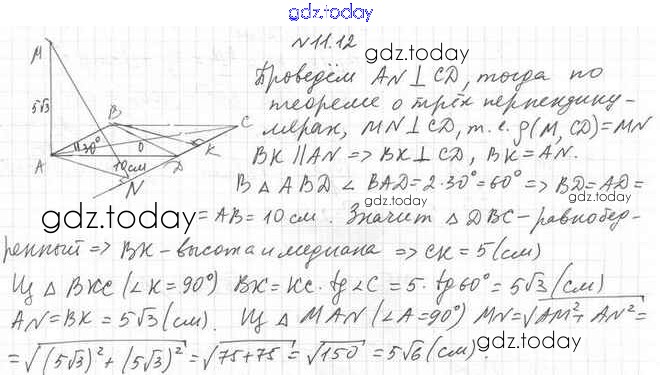 gdz.today
N 11.12
gdz.today
Проведём AN ⊥ CD, тогда по
теореме о трёх перпендику-
лярах, MN ⊥ CD, т.е. ρ(M, CD) = MN
BK ∥ AN => BK ⊥ CD, BK = AN.
В △ ABD ∠ BAD = 2·30° = 60° => BD = AD =
gdz.today
= AB = 10 см. Значит △ DBC - равнобед-
ренный => BK - высота и медиана => CK = 5 (см)
Из △ BKC (∠K = 90°) BK = KC · tg∠C = 5 · tg60° = 5√3 (см)
AN = BK = 5√3 (см). Из △ MAN (∠A = 90°) MN = √(AM² + AN²) =
= √((5√3)² + (5√3)²) = √(75+75) = √150 = 5√6 (см).
gdz.today
M
5√3
B
C
A
30°
O
K
10 см
D
N